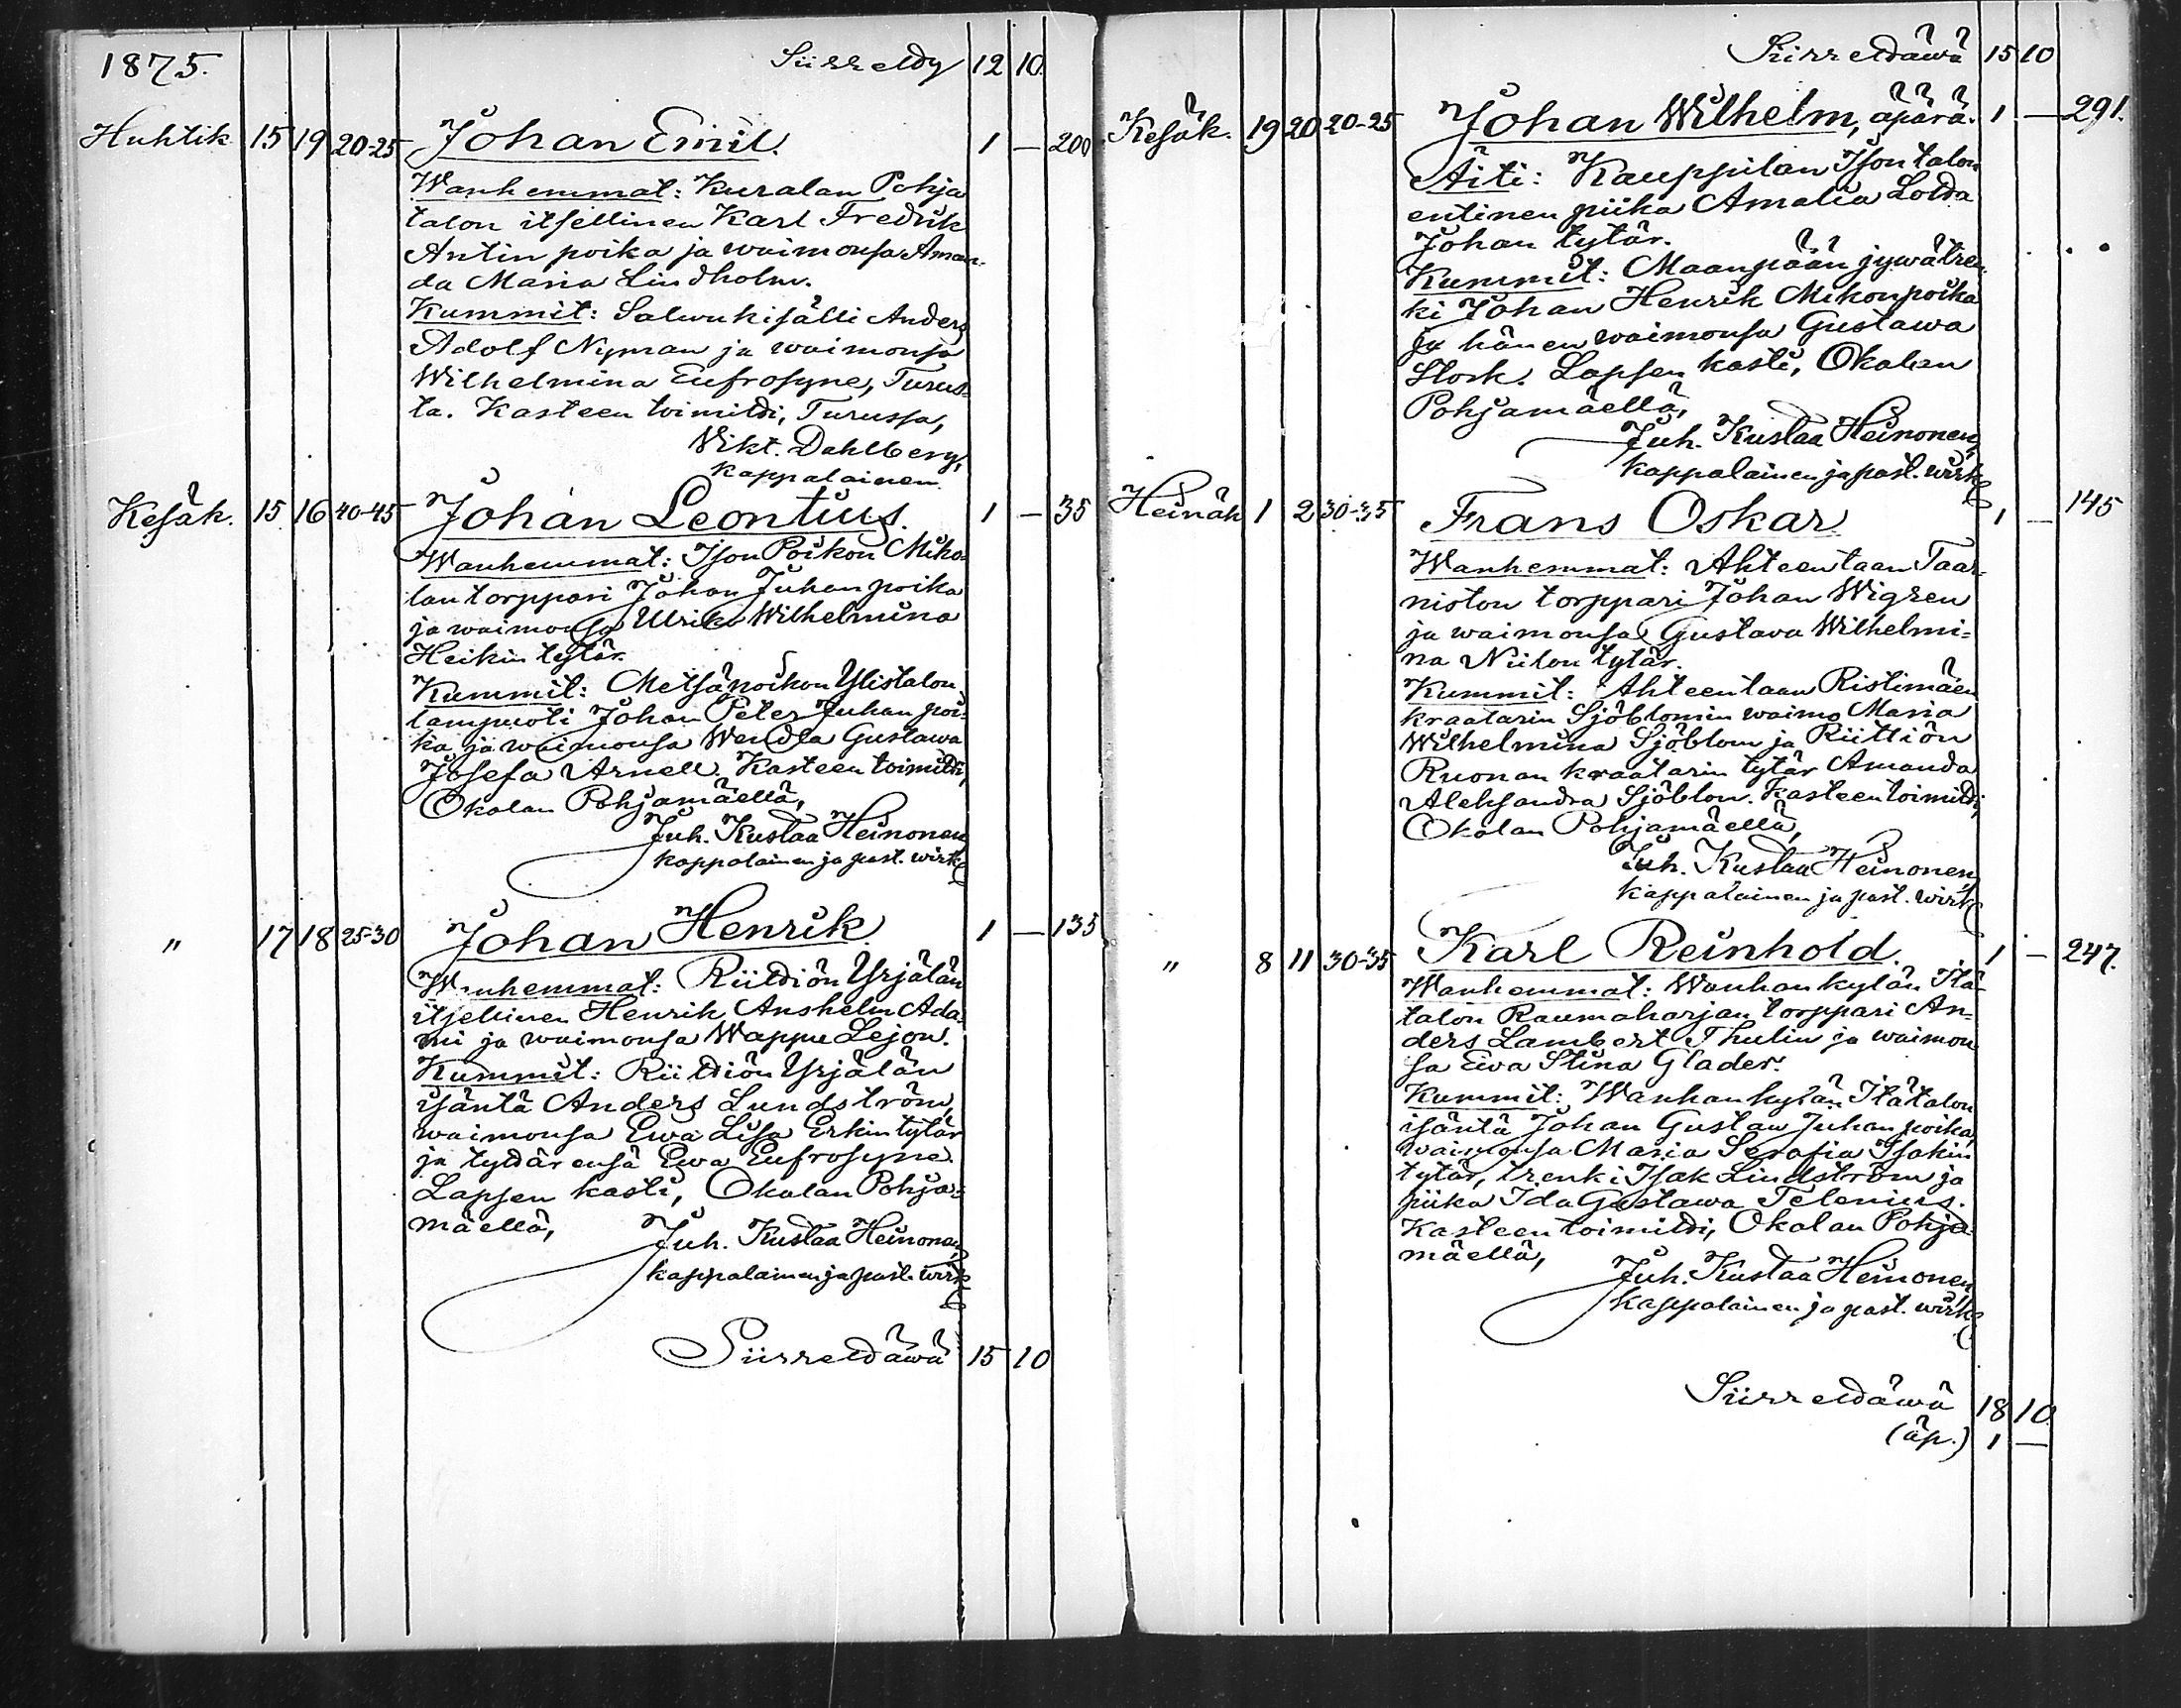 1875. Siirreldy 12 10.
Huhtik. 15 19 20-25 Johan Emil. 1 — 200
Wanhemmat: Kuralan Pohja
talon itsellinen Karl Fredrik
Antin poika ja waimonsa Aman-
da Maria Lindholm.
Kummit: Salwukisälli Anders
Adolf Nyman ja waimonsa
Wilhelmina Eufrosyne, Turus-
ta. Kasteen toimitdi, Turussa,
Wikt. Dahlberg,
kappalainen.
Kesäk. 15 16 40-45 Johan Leontius. 1 — 35
Wanhemmat: Ison Poikon Miko-
lan torppari Johan Juhan poika
ja waimonsa Ulrika Wilhelmina
Heikin tytär.
Kummit: Metsänoikon Ylistalon
lampuoti Johan Peter Juhan poi-
ka ja waimonsa Wendla Gustawa
Josefa Arnell. Kasteen toimitdi,
Okalan Pohjamäellä,
Juh. Kustaa Heinonen,
kappalainen ja past. wirk.
" 17 18 25-30 Johan Henrik. 1 — 135
Wanhemmat: Riitdiön Yrjälän
itsellinen Henrik Anshelm Ada-
mi ja waimonsa Wappu Lejon.
Kummit: Riitdiön Yrjälän
isäntä Anders Lundström,
waimonsa Ewa Lisa Erkin tytär
ja tytdärensä Ewa Eufrosyne.
Lapsen kasti, Okalan Pohja-
mäellä,
Juh. Kustaa Heinonen,
kappalainen ja past. wirk.
Siirreldäwä 15 10
Siirreldäwä 15 10
Kesäk. 19 20 20-25 Johan Wilhelm, äpärä. 1 — 291.
Äiti: Kauppilan Ison talon
entinen piika Amalia Lovda
Johan tytär.
Kummit: Maanpään jywätren-
ki Johan Henrik Mikonpoika
ja hänen waimonsa Gustawa
Stork. Lapsen kasti, Okalan
Pohjamäellä,
Juh. Kustaa Heinonen,
kappalainen ja past. wirk.
Heinäk. 1 2 30-35 Frans Oskar. 1 — 145
Wanhemmat: Ahteentaan Taar-
niston torppari Johan Wigren
ja waimonsa Gustava Wilhelmi-
na Niilon tytär.
Kummit: Ahteentaan Ristimäen
kraatarin Sjöblomin waimo Maria
Wilhelmina Sjöblom ja Riittiön
Ruonan kraatarin tytär Amanda
Aleksandra Sjöblom. Kasteen toimitdi,
Okalan Pohjamäellä,
Juh. Kustaa Heinonen,
kappalainen ja past. wirk.
" 8 11 30-35 Karl Reinhold. 1 — 247.
Wanhemmat: Wanhankylän Itä-
talon Raumaharjan torppari An-
ders Lambert Thulin ja waimon
sa Ewa Stina Glader.
Kummit: Wanhankylän Itätalon
isäntä Johan Gustaw Juhan poika,
waimonsa Maria Serafia Isakin
tytär, trenki Isak Lindström ja
piika Ida Gustawa Telenius.
Kasteen toimitdi, Okalan Pohja-
mäellä,
Juh. Kustaa Heinonen,
kappalainen ja past. wirk.
Siirreldäwä 18 10.
(äp.) 1 —